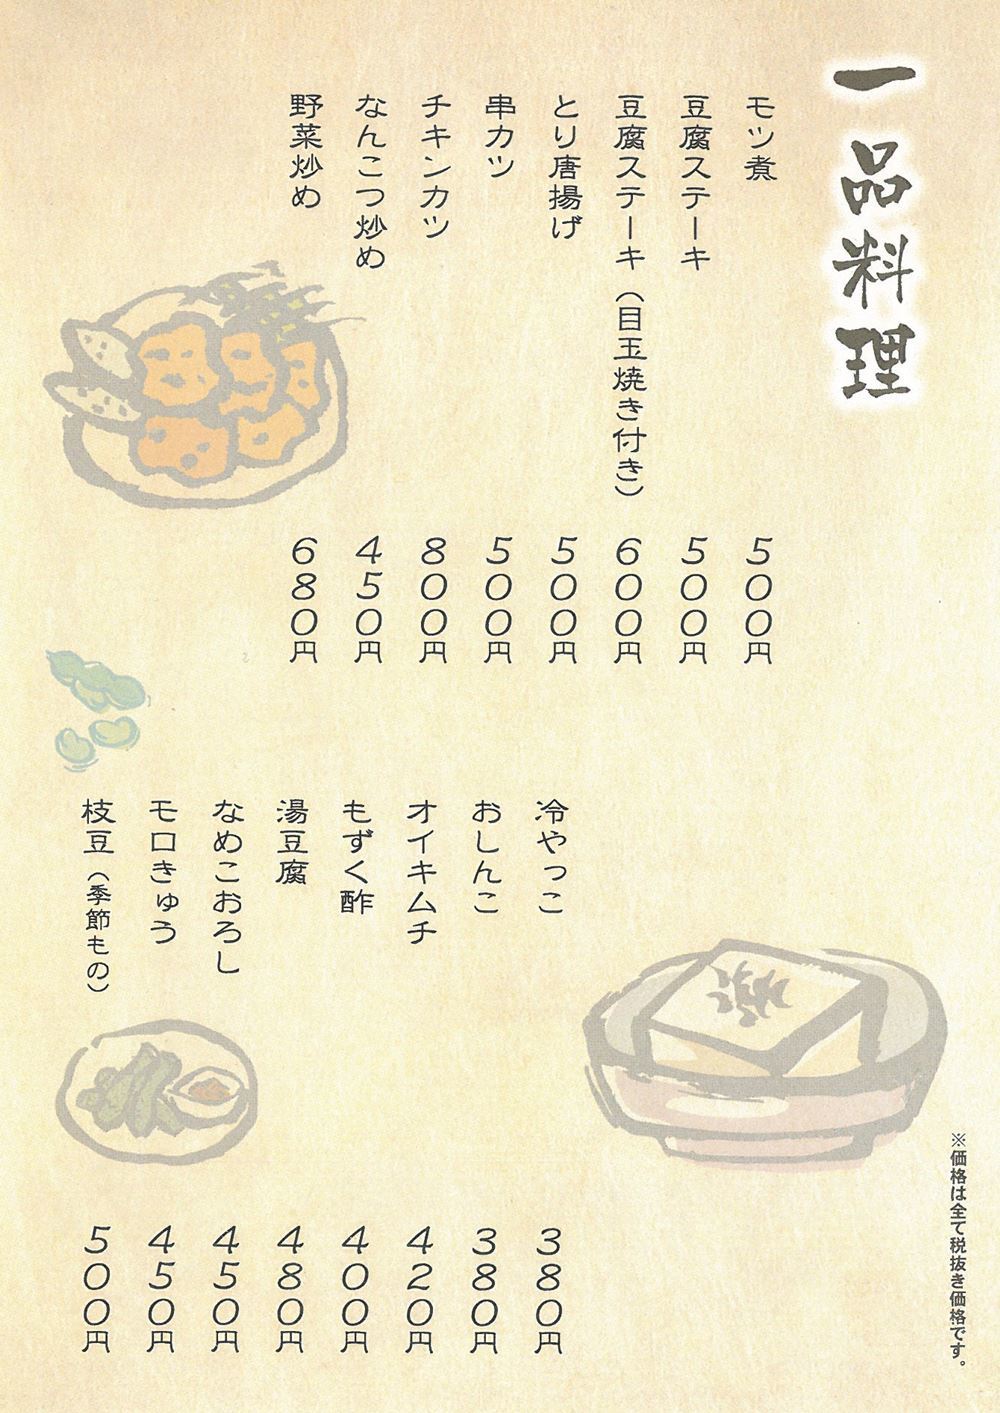 一品料理
モツ煮 500円
豆腐ステーキ 500円
豆腐ステーキ（目玉焼き付き） 600円
とり唐揚げ 500円
串カツ 500円
チキンカツ 800円
なんこつ炒め 450円
野菜炒め 680円
冷やっこ 380円
おしんこ 380円
オイキムチ 420円
もずく酢 400円
湯豆腐 480円
なめこおろし 450円
モロきゅう 450円
枝豆（季節もの） 500円
※価格は全て税抜き価格です。